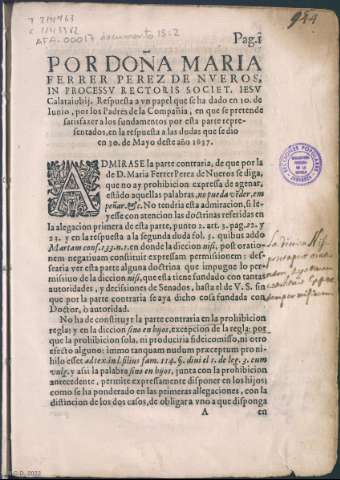 944
Pag. 1
POR DOÑA MARIA
FERRER PEREZ DE NVEROS,
IN PROCESSV RECTORIS SOCIET. IESV
Calataiubij. Respuesta a vn papel que se ha dado en 10. de
Iunio, por los Padres de la Compañia, en que se pretende
satisfazer a los fundamentos por esta parte repre-
sentados, en la respuesta a las dudas que se dio
en 30. de Mayo deste año 1637.
ADMIRASE la parte contraria, de que por la
de D. Maria Ferrer Perez de Nueros se diga,
que no ay prohibicion expressa de agenar,
estādo aquellas palabras, no pueda vēder, em
peñar, &c. No tendria esta admiracion, si le-
yesse con atencion las doctrinas referidas en
la alegacion primera de esta parte, punto 2. art. 1. pag. 22. y
23. y en la respuesta a la segunda duda fol. 5. quibus addo
Altariam conf. 133. n. 1. en donde la diccion nisi, post oratio-
nem negatiuam constituit expressam permissionem: des-
searia ver esta parte alguna doctrina que impugne lo per-
missiuo de la diccion nisi, que esta tiene fundado con tantas
autoridades, y decissiones de Senados, hasta el de V. S. sin
que por la parte contraria se aya dicho cosa fundada con
Doctor, ò autoridad.
No ha de constituyr la parte contraria en la prohibicion
regla; y en la diccion sino en hijos, excepcion de la regla: por
que la prohibicion sola, ni produciria fideicomisso, ni otro
efecto alguno: immo tanquam nudum præceptum pro ni-
hilo esset
vulg. y assi la palabra sino en hijos, junta con la prohibicion
antecedente, permite expressamente disponer en los hijos
como se ha ponderado en las primeras allegaciones, con la
distincion de los dos casos, de obligar a vno a que disponga
A en